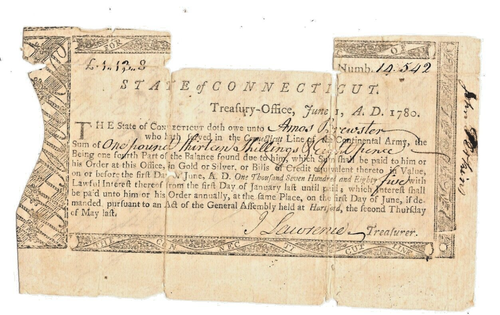 FOR
O
£ 1.13.8
Numb. 14.542
STATE of CONNECTICUT.
Treasury-Office, June 1, A. D. 1780.
THE State of CONNECTICUT doth owe unto Amos Brewster
who hath served in the Connecticut Line of the Continental Army, the
Sum of One pound thirteen Shillings & Eight Pence
Being one fourth Part of the Balance found due to him, which Sum shall be paid to him or
his Order at this Office, in Gold or Silver, or Bills of Credit equivalent thereto in Value,
on or before the first Day of June, A. D. One Thousand Seven Hundred and Eighty five with
Lawful Interest thereof from the first Day of January last until paid; which Interest shall
be paid unto him or his Order annually, at the same Place, on the first Day of June, if de-
manded, pursuant to an Act of the General Assembly held at Hartford, the second Thursday
of May last.
Lawrence Treasurer.
John